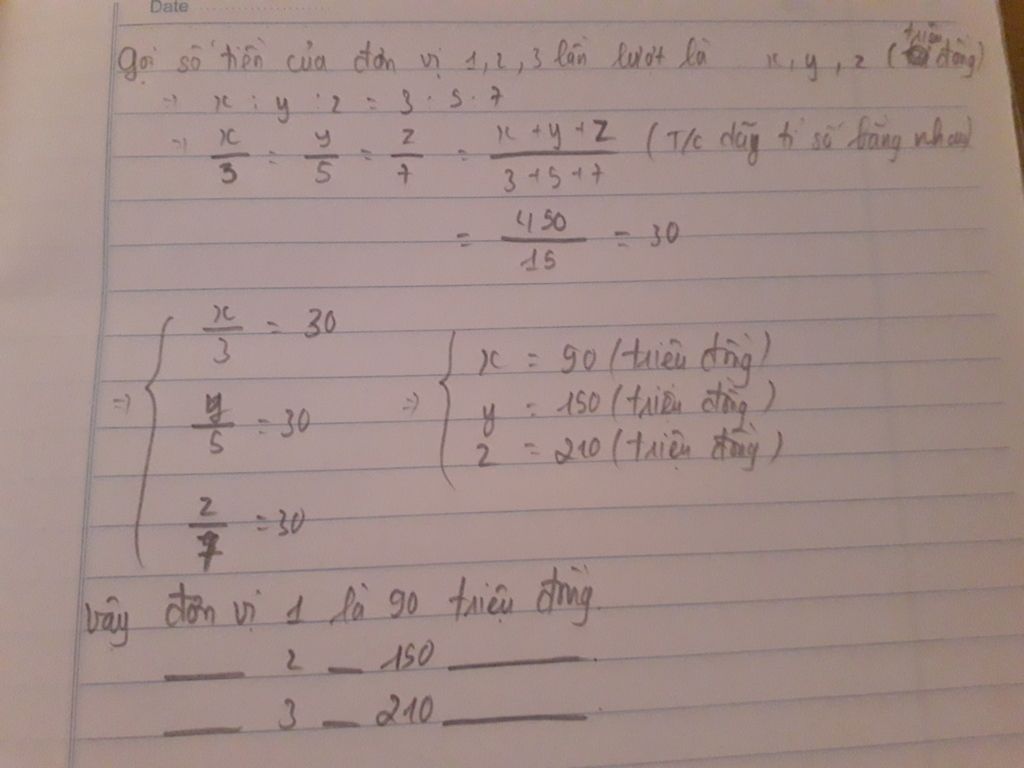 Date
Gọi số tiền của đơn vị 1, 2, 3 lần lượt là x, y, z (triệu đồng)
=> x : y : z = 3 : 5 : 7
=> x/3 = y/5 = z/7 = x+y+z/3+5+7 (T/c dãy tỉ số bằng nhau)
= 450/15 = 30
=> { x/3 = 30
y/5 = 30
z/7 = 30
=> { x = 90 (triệu đồng)
y = 150 (triệu đồng)
z = 210 (triệu đồng)
Vậy đơn vị 1 là 90 triệu đồng.
___ 2 _ 150 ___.
___ 3 _ 210 ___.